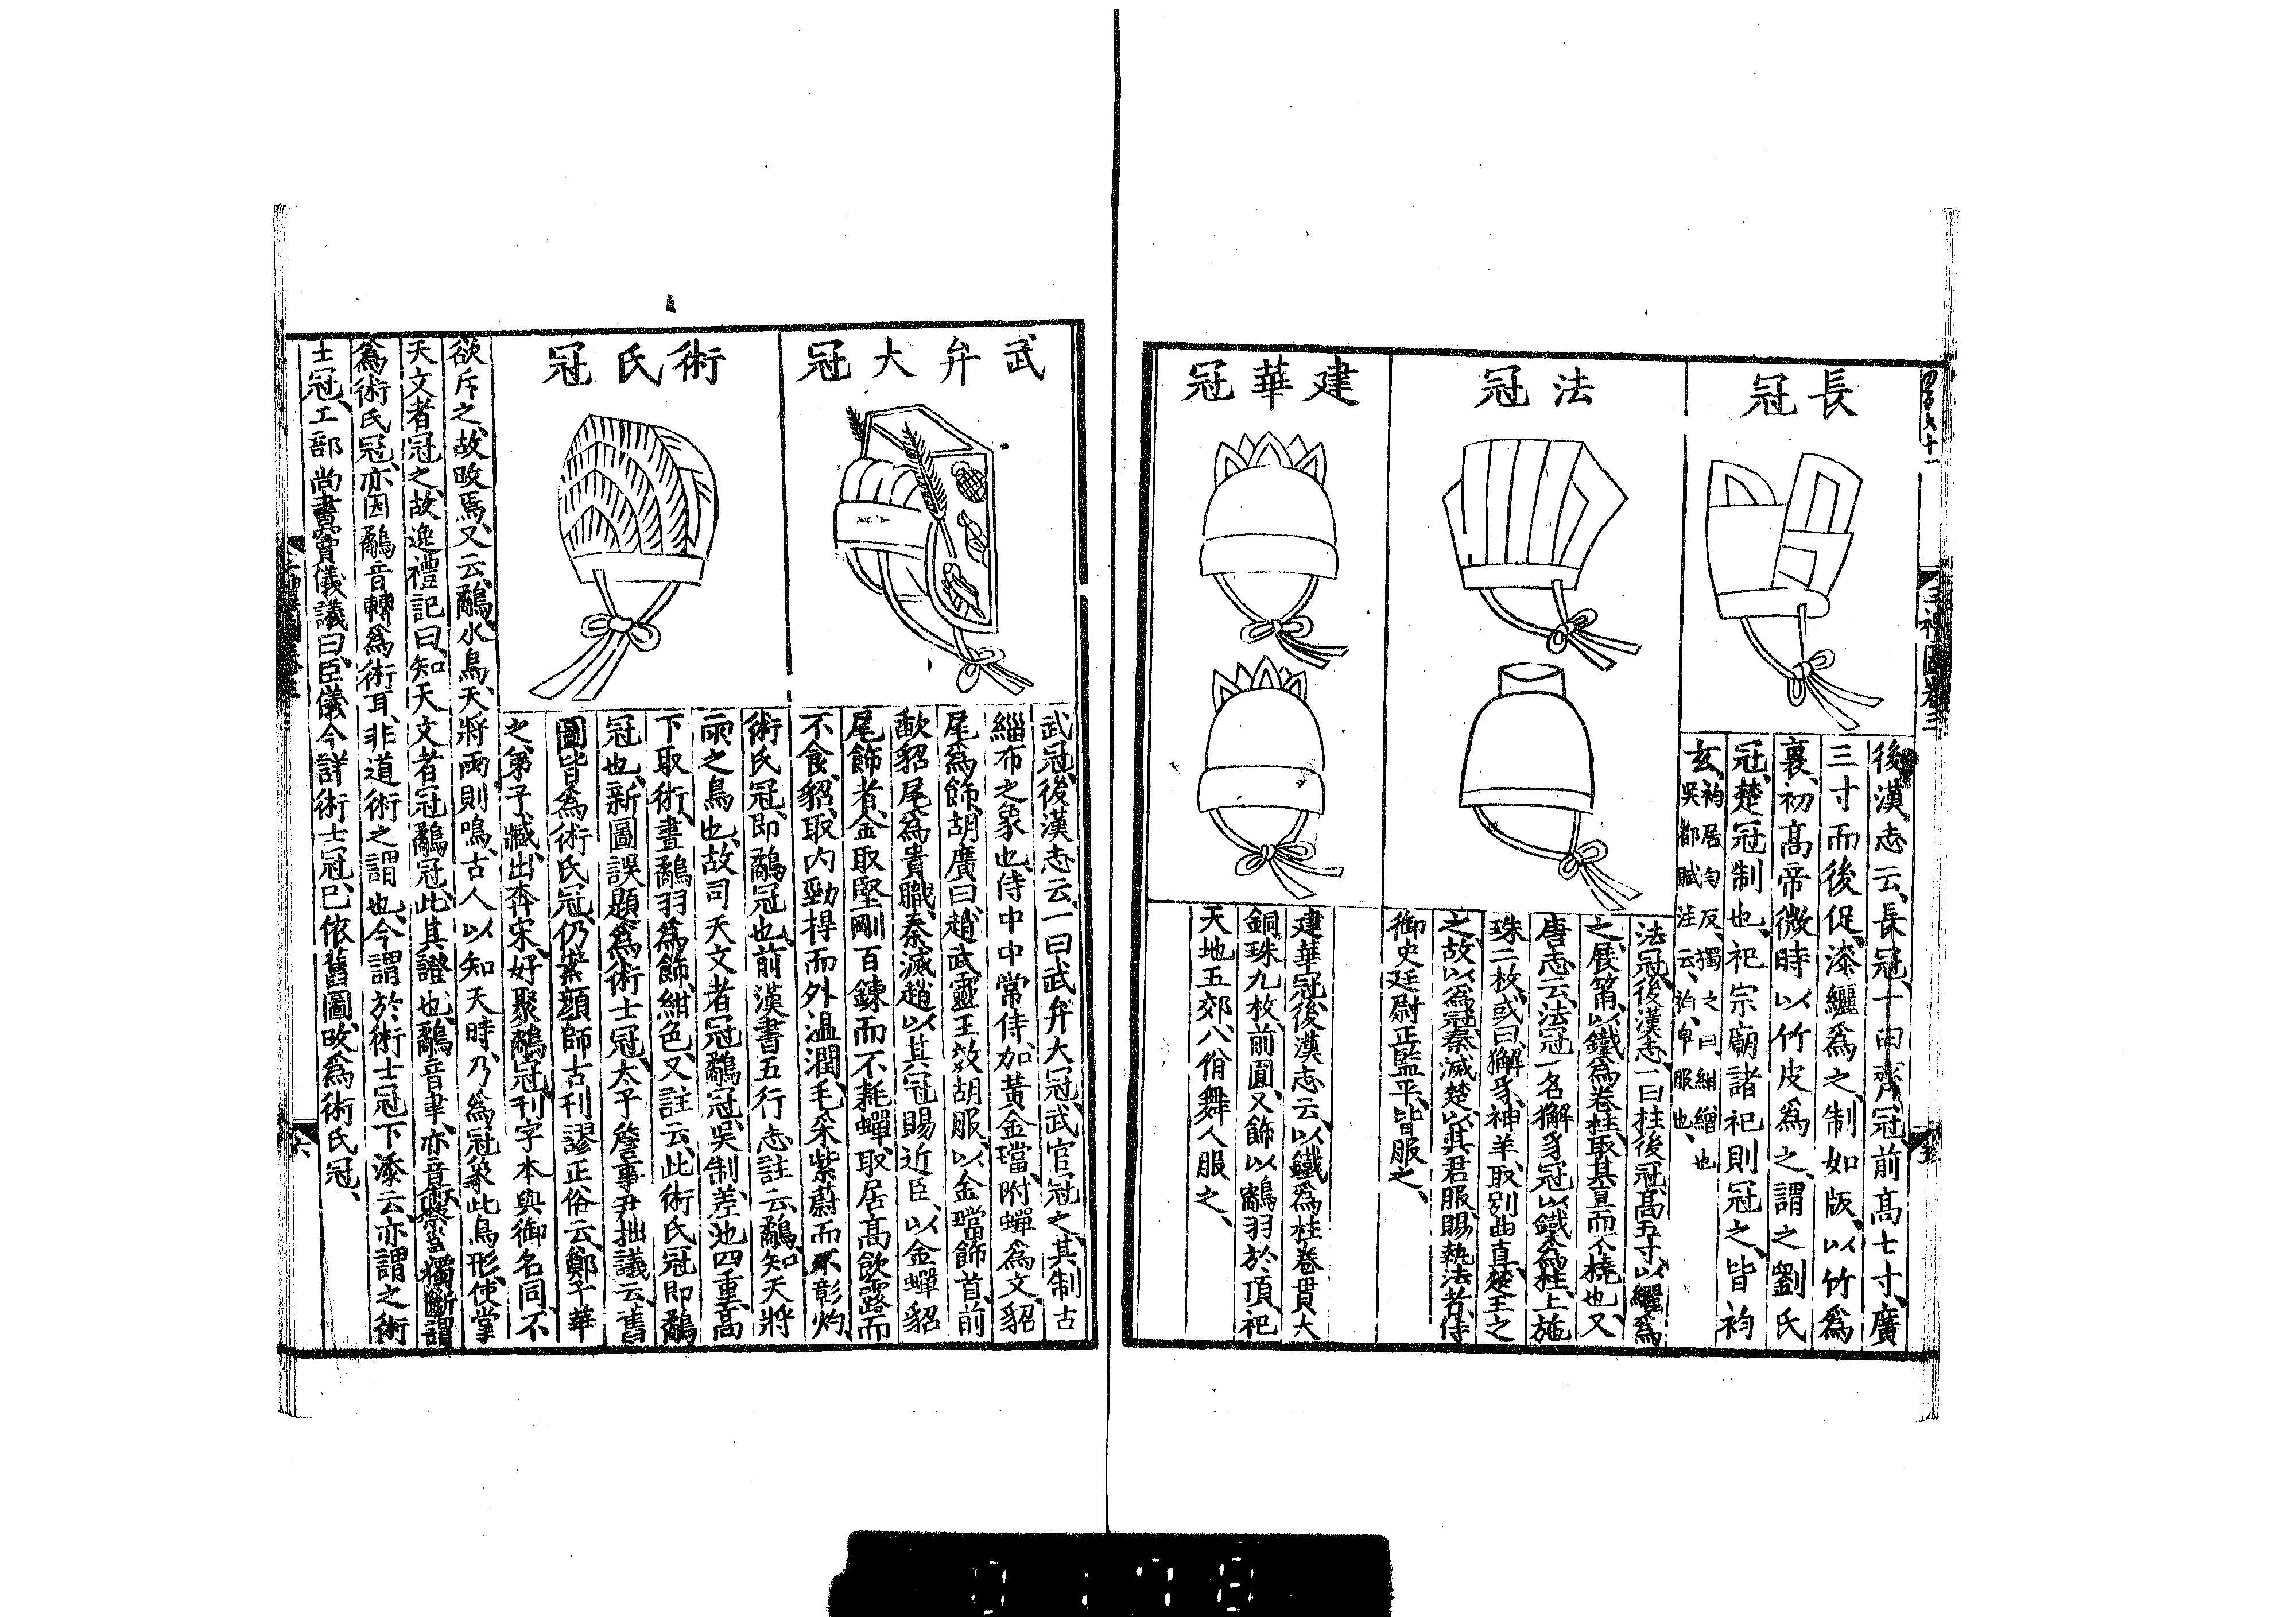 長冠
後漢志云、長冠、一曰齊冠、前高七寸、廣
三寸而後促、漆纚爲之、制如版、以竹爲
裏、初高帝微時以竹皮爲之、謂之劉氏
冠、楚冠制也、祀宗廟諸祀則冠之、皆袀
玄、袀居勻反、獨之曰紺繒也
吳都賦注云、袀皁服也、
法冠
法冠、後漢志一曰柱後冠、高五寸、以纚爲
之、展筩、以鐵爲卷柱、取其直而不橈也、又
唐志云、法冠一名獬豸冠、以鐵爲柱、上施
珠二枚、或曰、獬豸神羊、取別曲直、楚王之
之、故以爲冠、秦滅楚、以其君服賜執法者、侍
御史廷尉正監平、皆服之、
建華冠
建華冠、後漢志云、以鐵爲柱卷貫大
銅珠九枚、前圓、又飾以鷸羽於頂、祀
天地五郊、八佾舞人服之、
三禮圖卷三
五
武弁大冠
武冠、後漢志云、一曰武弁大冠、武官冠之、其制古
緇布之象也、侍中中常侍、加黃金璫、附蟬爲文、貂
尾爲飾、胡廣曰、趙武靈王效胡服、以金璫飾首、前
歃貂尾爲貴職、秦滅趙、以其冠賜近臣、以金蟬貂
尾飾者、金取堅剛百鍊而不耗、蟬、取居高飲露而
不食、貂、取內勁捍而外温潤、毛采紫蔚而不彰灼、
術氏冠
術氏冠、即鷸冠也、前漢書五行志、註云、鷸知天將
雨之鳥也、故司天文者冠鷸冠、吳制、差池四重、高
下取術、畫鷸羽爲飾、紺色、又註云、此術氏冠即鷸
冠也、新圖誤題爲術士冠、太子詹事尹拙議云、舊
圖皆爲術氏冠、仍案顏師古刊謬正俗云、鄭子華
之第子臧、出奔宋、好聚鷸冠、刊字本與御名同、不
欲斥之、故攺焉、又云、鷸水鳥、天將雨則鳴、古人以知天時、乃爲冠象此鳥形、使掌
天文者冠之、故逸禮記曰、知天文者冠鷸冠、此其證也、鷸音聿、亦音術、蔡邕獨斷謂
爲術氏冠、亦因鷸音轉爲術耳、非道術之謂也、今謂於術士冠下漆云、亦謂之術
士冠、工部尚書竇儀議曰、臣儀今詳術士冠、已依舊圖、攺爲術氏冠、
六
0178